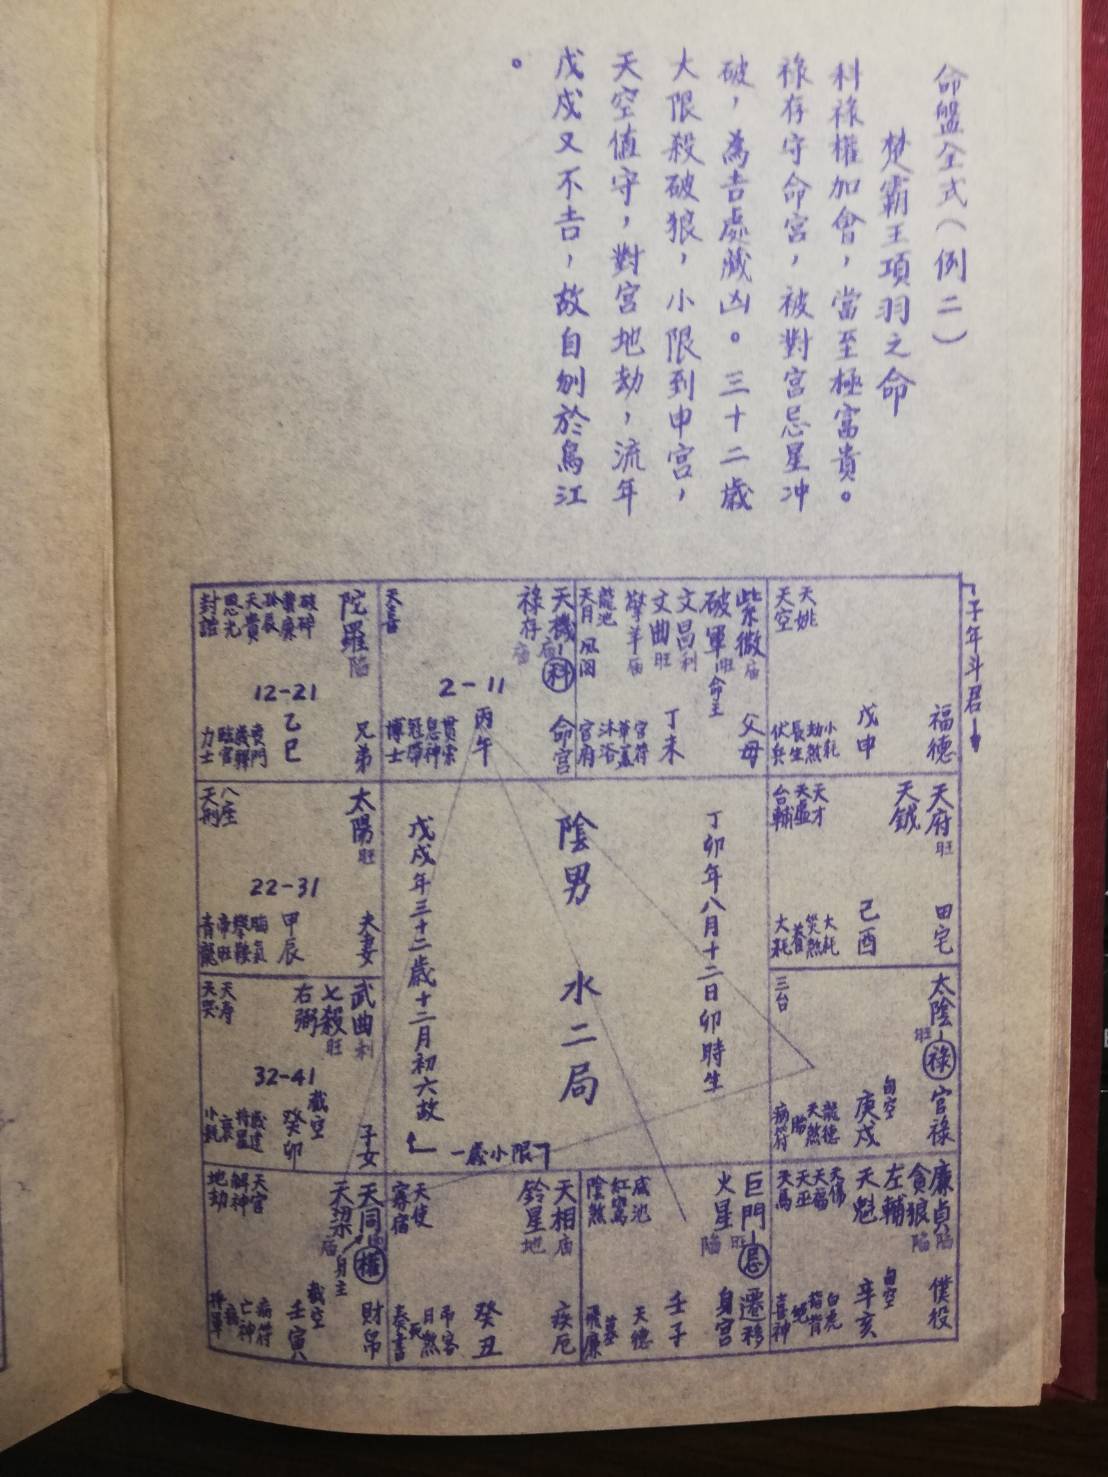 命盤全式（例二）
楚霸王項羽之命
科祿權加會，當至極富貴。
祿存守命宮，被對宮忌星冲
破，為吉處藏凶。三十二歲
大限殺破狼，小限到申宮，
天空值守，對宮地劫，流年
戊戌又不吉，故自刎於烏江
。
子年斗君
天姚
天空
福德
戊申
小耗
劫煞
長生
伏兵
紫微廟
破軍旺 命主
文昌利
文曲旺
擎羊廟
龍池
天月 凤阁
父母
丁未
官符
華蓋
沐浴
官府
天機廟 科
祿存廟
天喜
2-11
命宮
丙午
貫索
息神
冠帶
博士
陀羅陷
破碎
蜚廉
天貴
恩光
封誥
12-21
兄弟
乙巳
喪門
歲驛
臨官
力士
天府旺
天鉞
天才
天虛
台輔
田宅
己酉
大耗
災煞
養
大耗
丁卯年八月十二日卯時生
陰男 水二局
戊戌年三十二歲十二月初六故
一歲小限
太陽旺
八座
天刑
22-31
夫妻
甲辰
晦氣
攀鞍
帝旺
青龍
太陰旺 祿
三台
官祿
旬空
庚戌
龍德
天煞
胎
病符
武曲利
七殺旺
右弼
天寿
天哭
32-41
子女
截空
癸卯
歲建
將星
衰
小耗
廉貞陷
貪狼陷
左輔
天魁
天傷
天福
天巫
天馬
僕役
旬空
辛亥
白虎
指背
絕
喜神
巨門旺 忌
火星陷
咸池
紅鸞
陰煞
遷移
身宮
壬子
天德
墓
飛廉
天相廟
鈴星地
天使
寡宿
疾厄
癸丑
吊客
月煞
死
奏書
天同 權
天梁廟 身主
天官
解神
地劫
財帛
截空
壬寅
病符
亡神
病
將軍